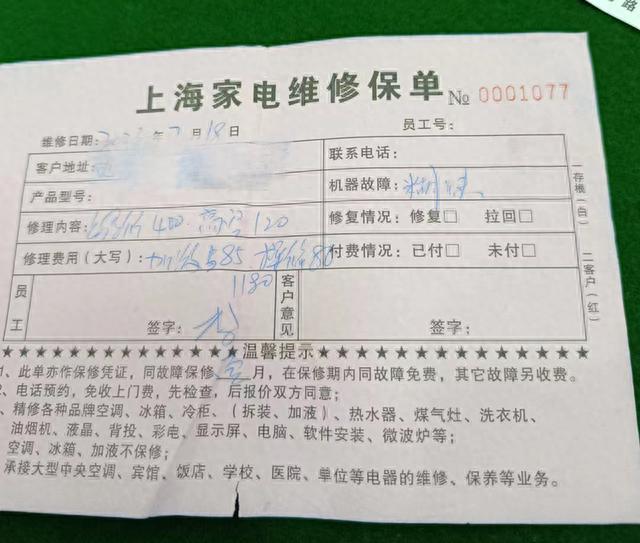 上海家电维修保单 № 0001077
维修日期: 年7月18日 员工号:
客户地址: 联系电话:
产品型号: 机器故障:
修理内容: 400 高空120 修复情况: 修复□ 拉回□
修理费用(大写): 85 80 付费情况: 已付□ 未付□
1180
员工 签字: 客户意见 签字:
一存根(白) 二客户(红)
★★★★★★★★★★★★温馨提示★★★★★★★★★★★★
1、此单亦作保修凭证,同故障保修 月,在保修期内同故障免费,其它故障另收费。
2、电话预约,免收上门费,先检查,后报价双方同意;
、精修各种品牌空调、冰箱、冷柜、(拆装、加液)、热水器、煤气灶、洗衣机、
油烟机、液晶、背投、彩电、显示屏、电脑、软件安装、微波炉等;
空调、冰箱、加液不保修;
承接大型中央空调、宾馆、饭店、学校、医院、单位等电器的维修、保养等业务。
路